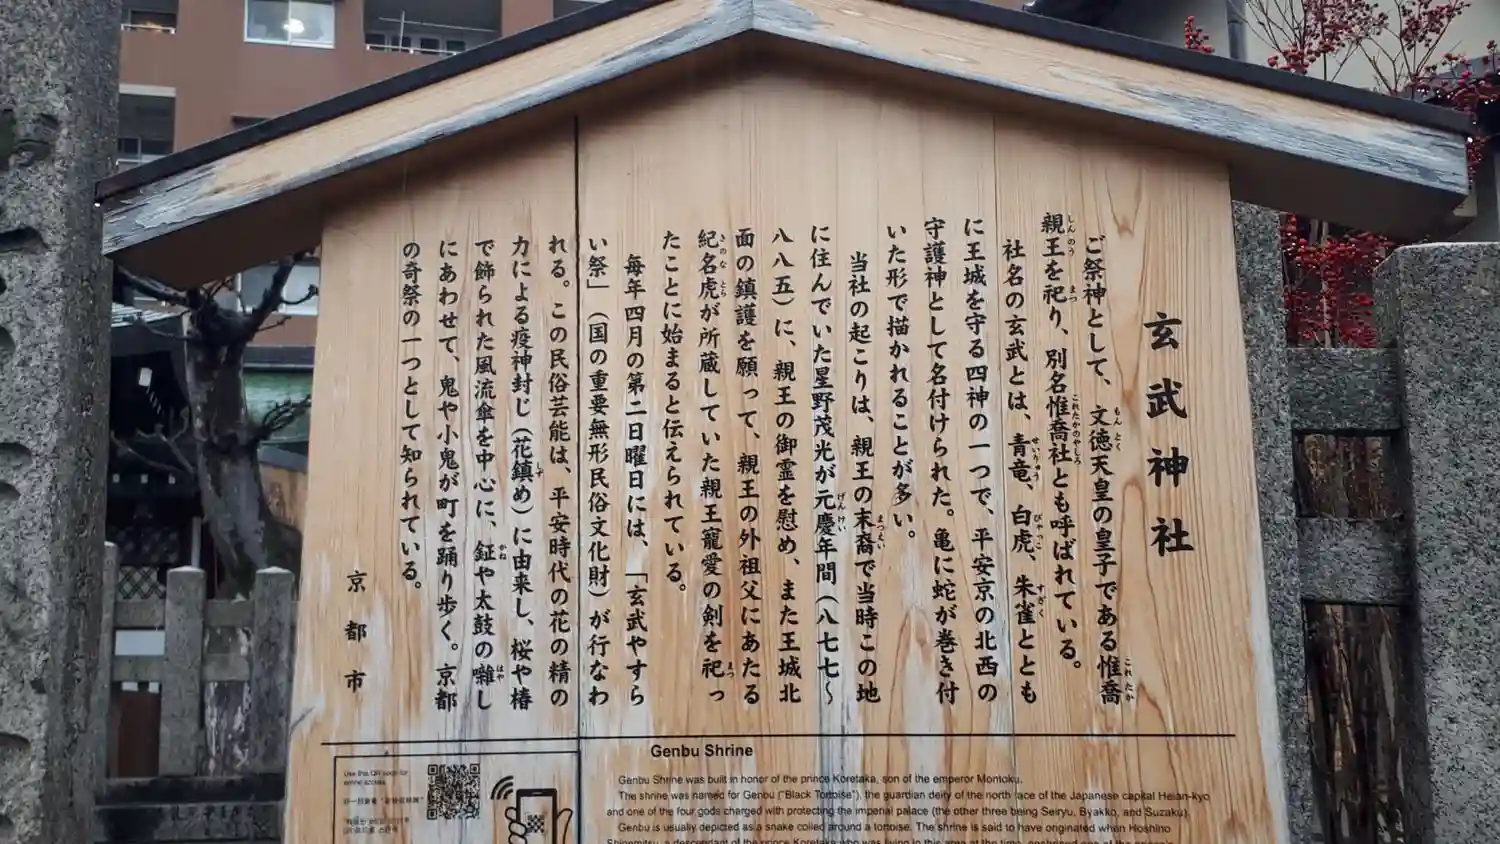 玄武神社
ご祭神として、文徳天皇の皇子である惟喬
親王を祀り、別名惟喬社とも呼ばれている。
社名の玄武とは、青竜、白虎、朱雀ととも
に王城を守る四神の一つで、平安京の北西の
守護神として名付けられた。亀に蛇が巻き付
いた形で描かれることが多い。
当社の起こりは、親王の末裔で当時この地
に住んでいた星野茂光が元慶年間(八七七~
八八五)に、親王の御霊を慰め、また王城北
面の鎮護を願って、親王の外祖父にあたる
紀名虎が所蔵していた親王寵愛の剣を祀っ
たことに始まると伝えられている。
毎年四月の第二日曜日には、「玄武やすら
い祭」(国の重要無形民俗文化財)が行なわ
れる。この民俗芸能は、平安時代の花の精の
力による疫神封じ(花鎮め)に由来し、桜や椿
で飾られた風流傘を中心に、鉦や太鼓の囃し
にあわせて、鬼や小鬼が町を踊り歩く。京都
の奇祭の一つとして知られている。
京都市
Genbu Shrine
Genbu Shrine was built in honor of the prince Koretaka, son of the emperor Montoku.
The shrine was named for Genbu ("Black Tortoise"), the guardian deity of the north face of the Japanese capital Heian-kyo
and one of the four gods charged with protecting the imperial palace (the other three being Seiryu, Byakko, and Suzaku).
Genbu is usually depicted as a snake coiled around a tortoise. The shrine is said to have originated when Hoshino
Shigemitsu, a descendant of the prince Koretaka who was living in this area at the time, enshrined one of the
Use this QR code for